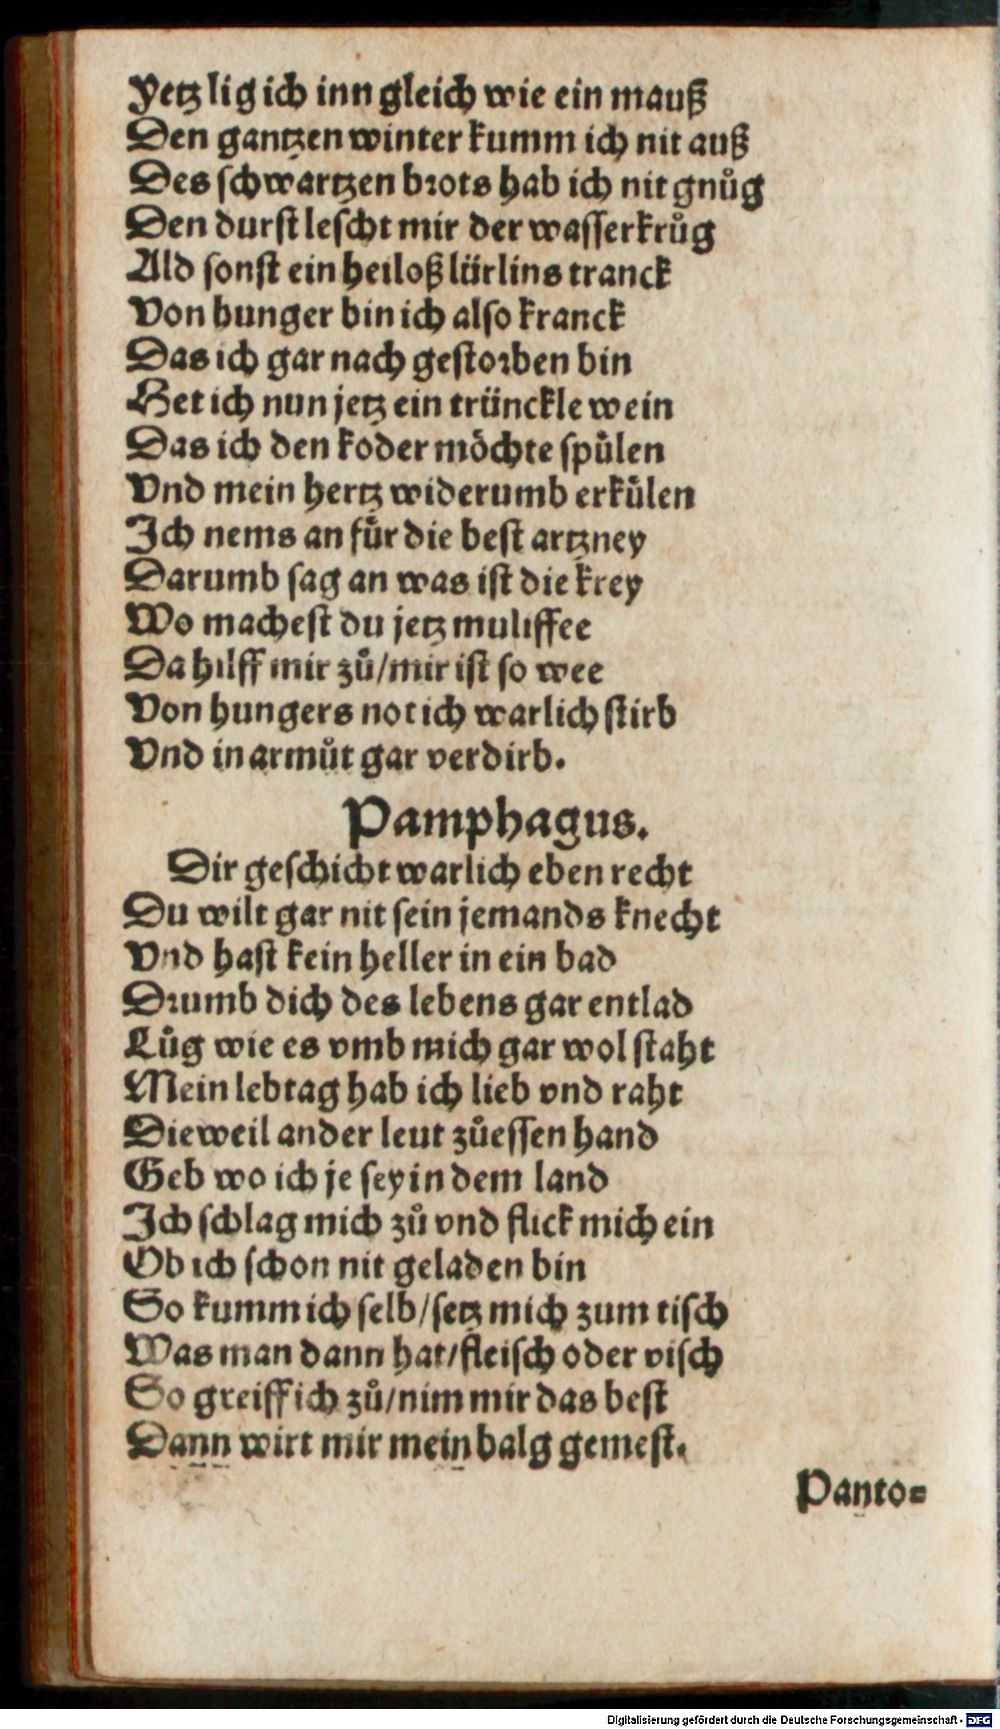 Yetz lig ich inn gleich wie ein mauß
Den gantzen winter kumm ich nit auß
Des schwartzen brots hab ich nit gnůg
Den durst lescht mir der wasserkrůg
Ald sonst ein heiloß lürlins tranck
Von hunger bin ich also kranck
Das ich gar nach gestorben bin
Het ich nun jetz ein trünckle wein
Das ich den koder möchte spülen
Vnd mein hertz widerumb erkülen
Ich nems an für die best artzney
Darumb sag an was ist die krey
Wo machest du jetz muliffee
Da hilff mir zů/mir ist so wee
Von hungers not ich warlich stirb
Vnd in armůt gar verdirb.
Pamphagus.
Dir geschicht warlich eben recht
Du wilt gar nit sein jemands knecht
Vnd hast kein heller in ein bad
Drumb dich des lebens gar entlad
Lůg wie es vmb mich gar wol staht
Mein lebtag hab ich lieb vnd raht
Dieweil ander leut zůessen hand
Geb wo ich je sey in dem land
Ich schlag mich zů vnd flick mich ein
Ob ich schon nit geladen bin
So kumm ich selb/setz mich zum tisch
Was man dann hat/fleisch oder visch
So greiff ich zů/nim mir das best
Dann wirt mir mein balg gemest.
Panto⸗
Digitalisierung gefördert durch die Deutsche Forschungsgemeinschaft - DFG